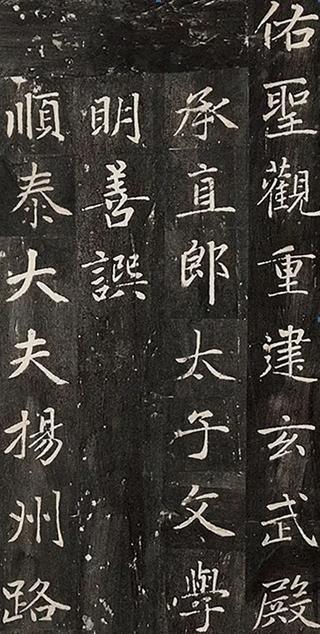 佑聖觀重建玄武殿
承直郎太子文學
明善譔
順泰大夫揚州路